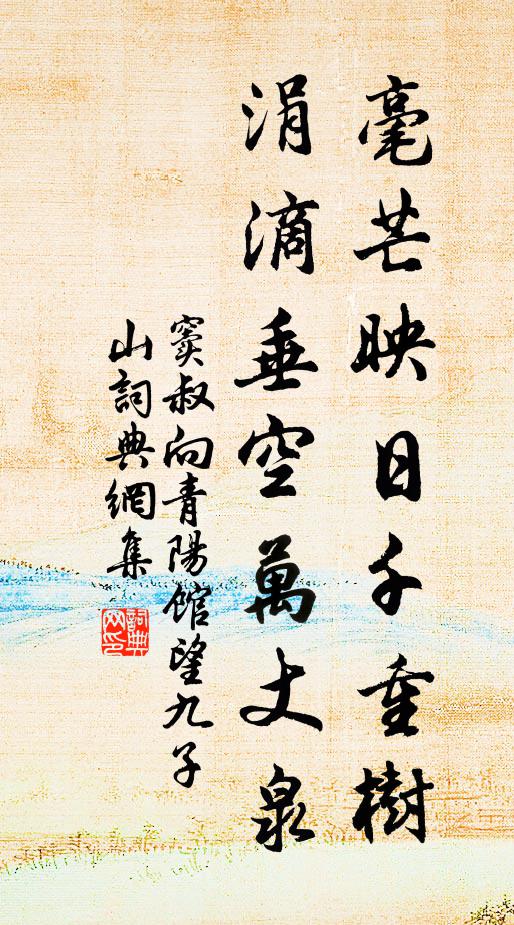 毫芒映日千重樹
涓滴垂空萬丈泉
竇叔向青陽館望九子
山詞典網集
詞典
网印